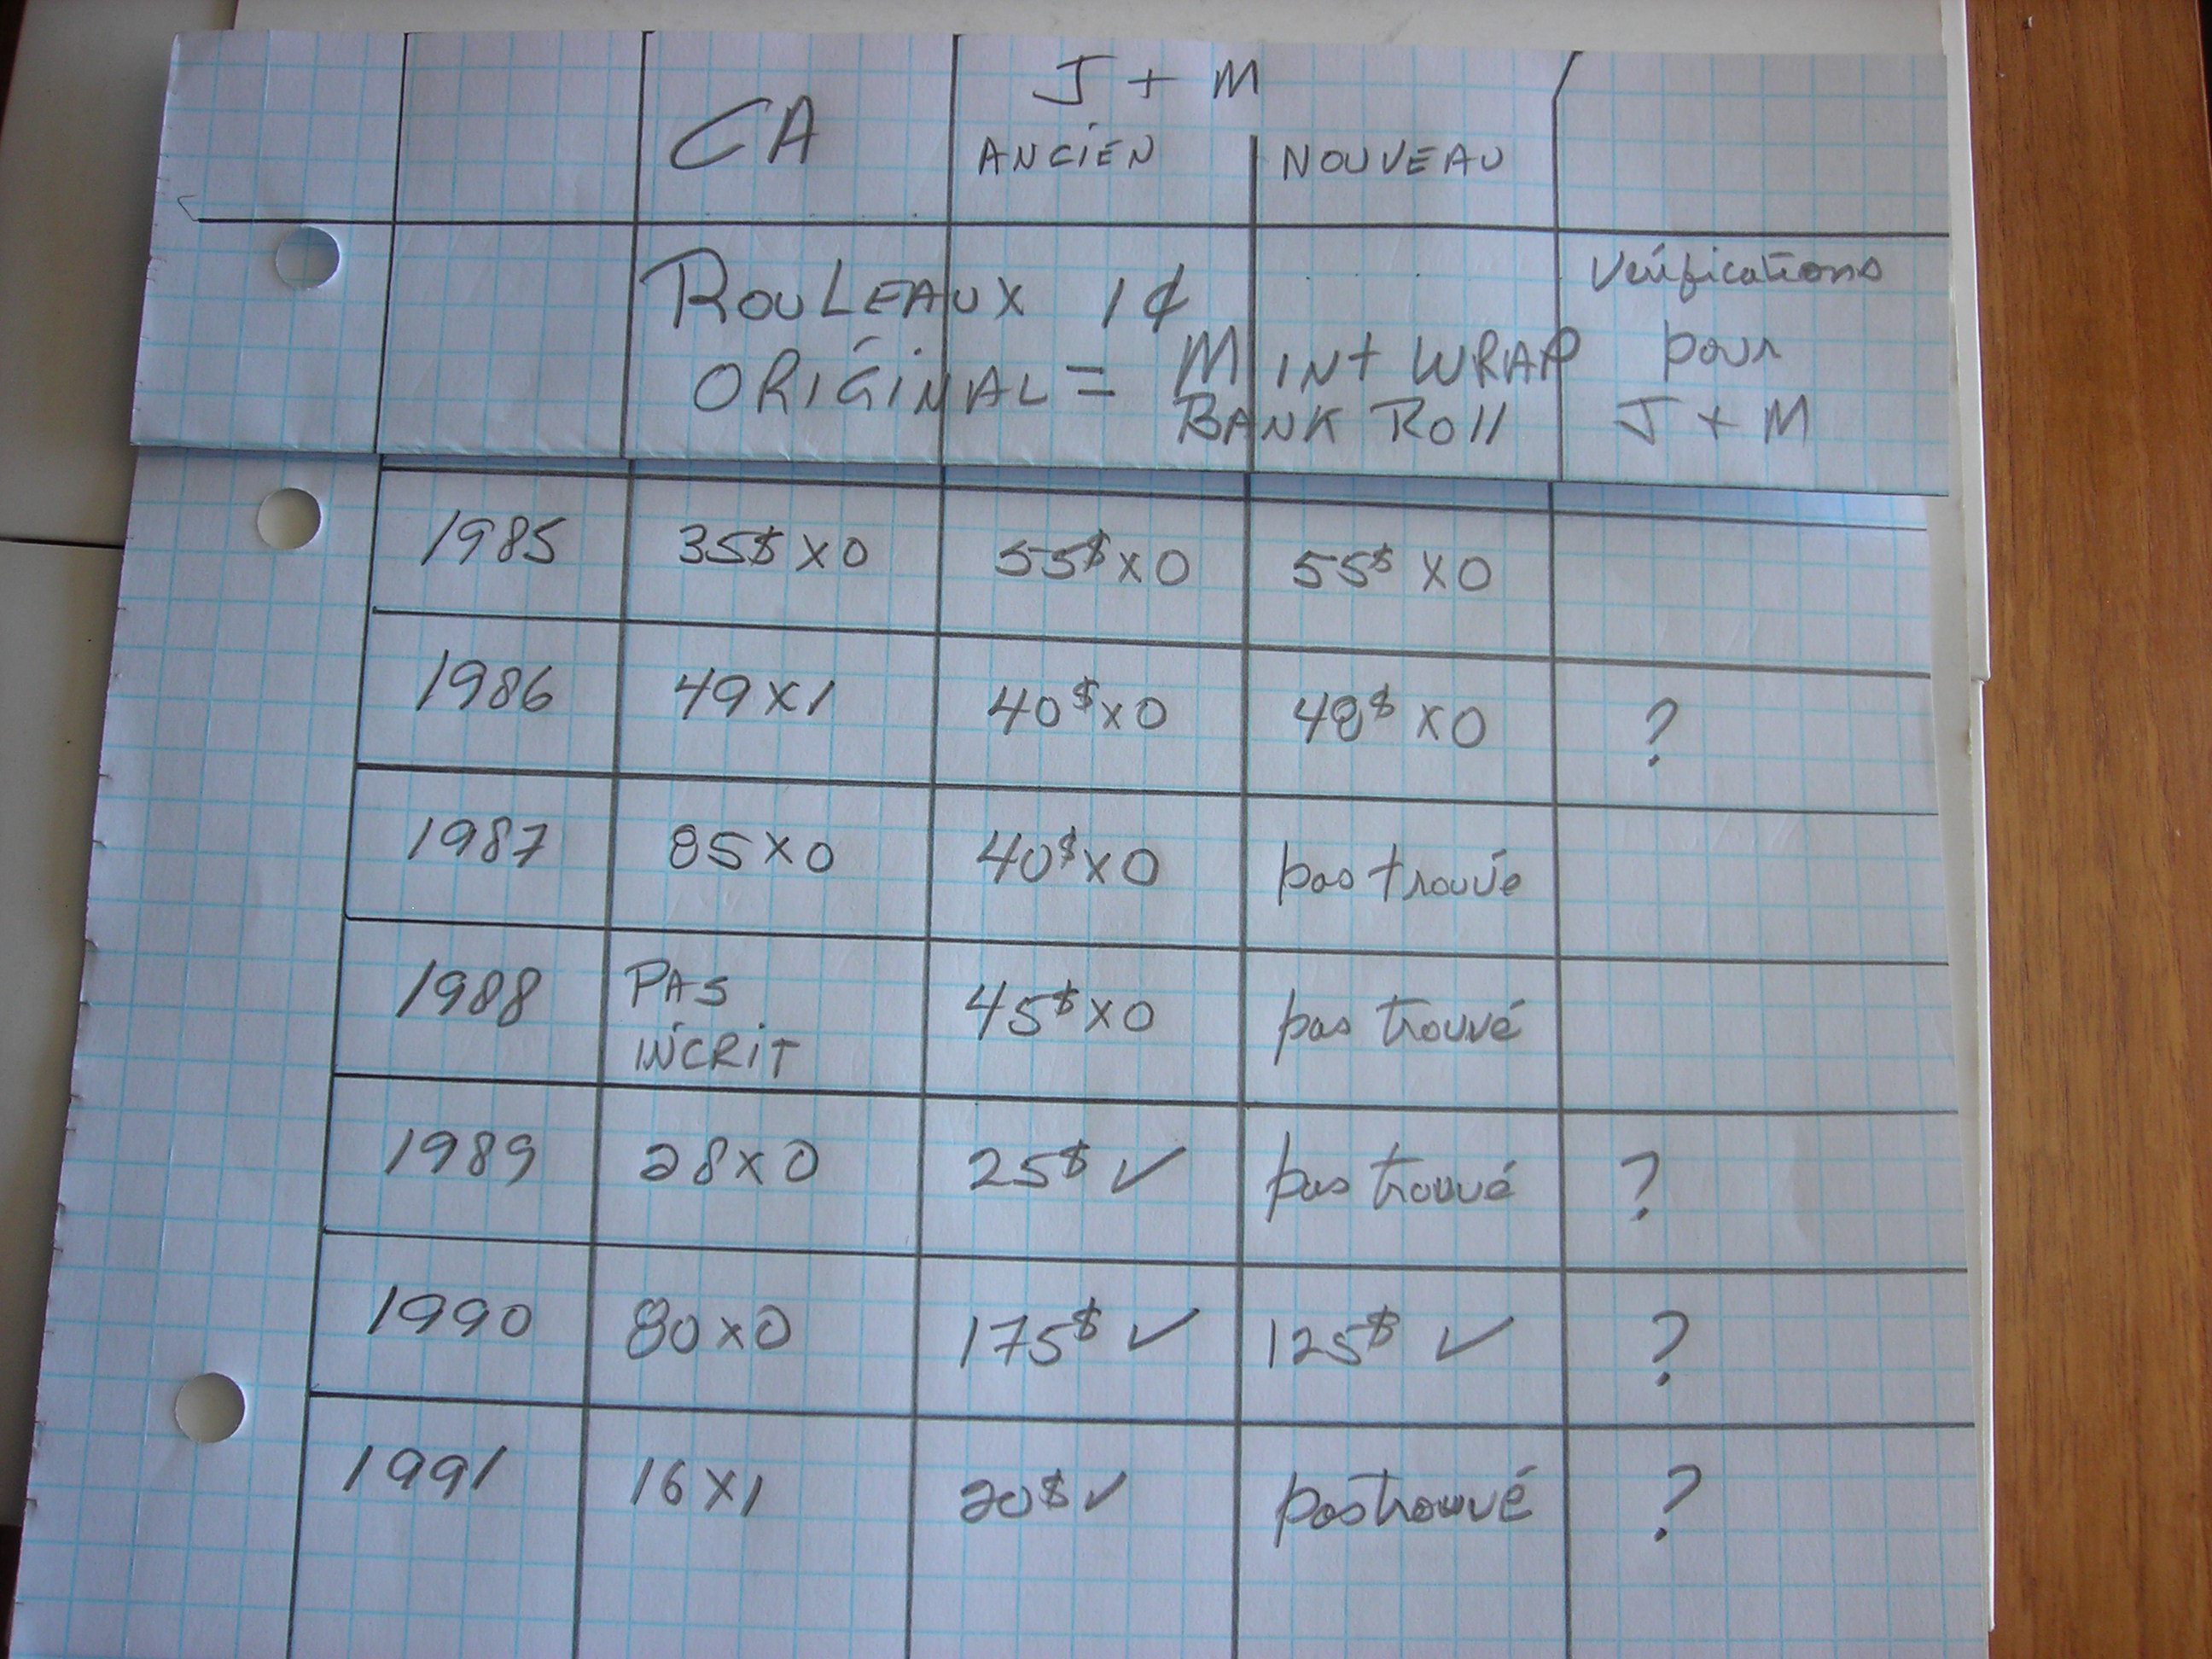 J + M
CA ANCIEN NOUVEAU
ROULEAUX 1¢ Vérifications
ORIGINAL = MINT WRAP pour
BANK ROLL J + M
1985 35$ X0 55$ X0 55$ X0
1986 49 X1 40$ X0 48$ X0 ?
1987 85 X0 40$ X0 pas trouvé
1988 PAS INCRIT 45$ X0 pas trouvé
1989 28 X0 25$ ✓ pas trouvé ?
1990 80 X0 175$ ✓ 125$ ✓ ?
1991 16 X1 20$ ✓ pas trouvé ?